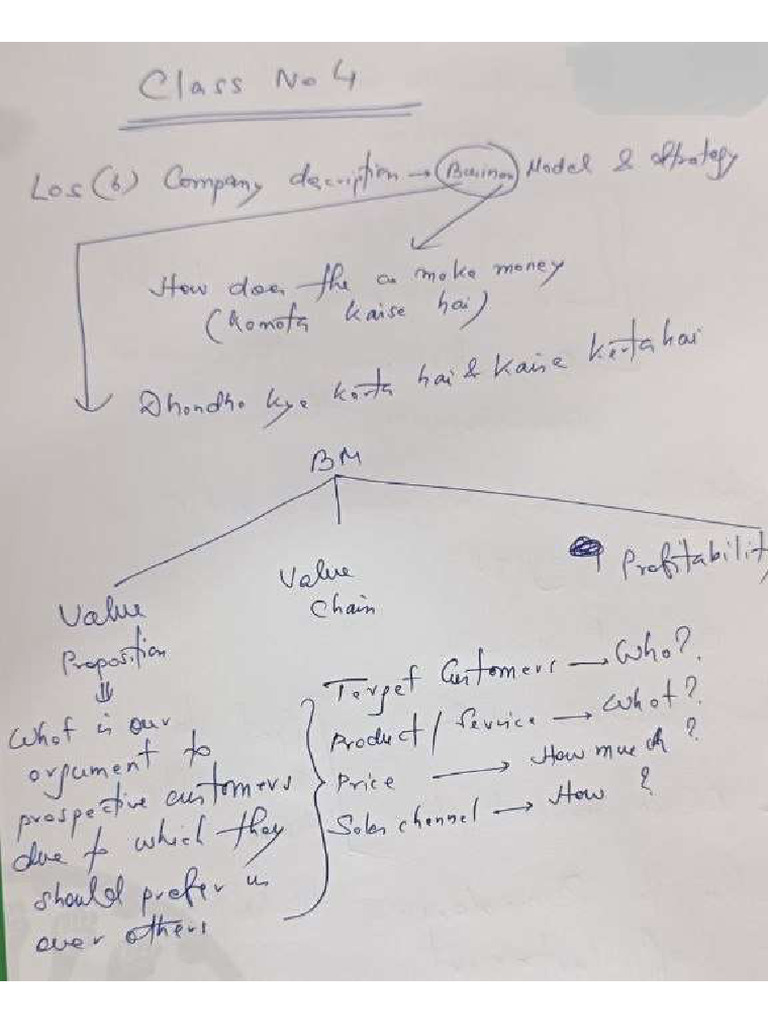 Class No 4
Los (b) Company description → Business Model & Strategy
How does the co make money
(Komota kaise hai)
Dhondho kya korta hai & Kaise Kerta hai
BM
Value
Proposition
Value
Chain
Profitability
What is our
argument to
prospective customers
due to which they
should prefer us
over others
Target Customers → Who?
Product / Service → What?
Price → How much ?
Sales channel → How ?